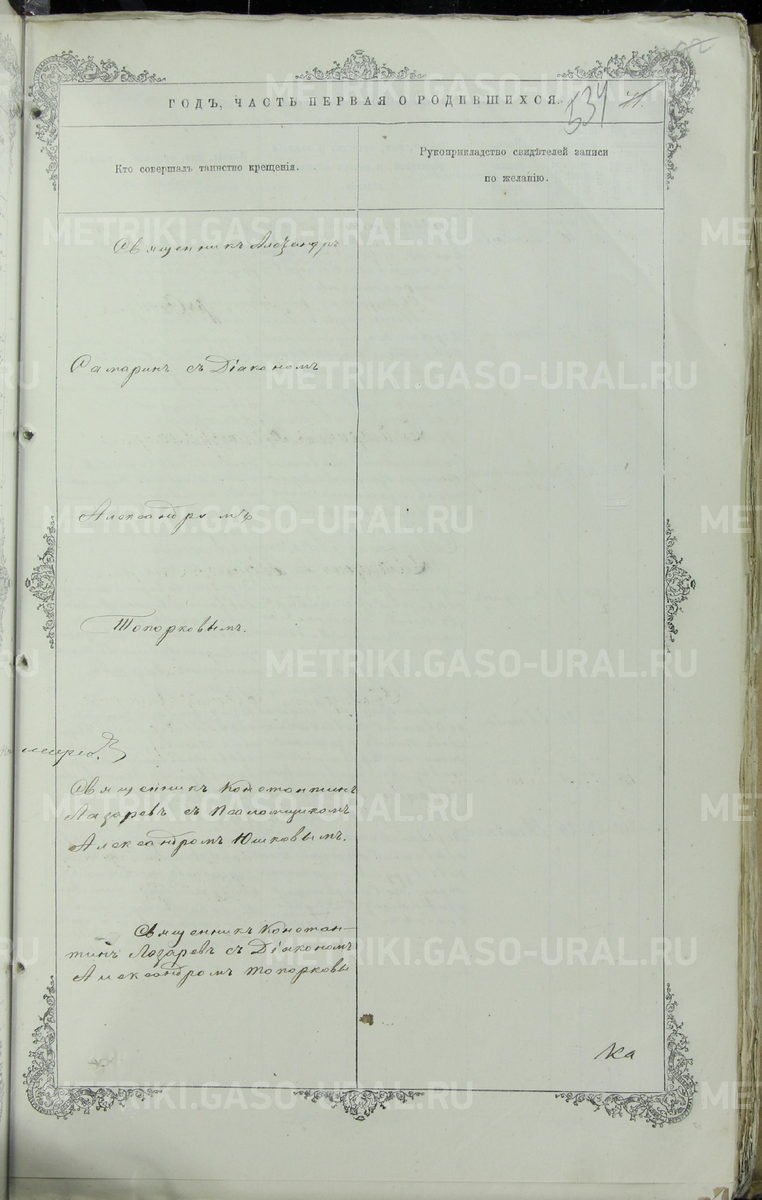 ГОДЪ, ЧАСТЬ ПЕРВАЯ О РОДИВШИХСЯ.
534
Кто совершалъ таинство крещенія.
Рукоприкладство свидѣтелей записи
по желанію.
Священникъ Александръ
Самаринъ съ Діакономъ
Александромъ
Топорковымъ.
Священникъ Константинъ
Лазаревъ съ Псаломщикомъ
Александромъ Юшковымъ.
Священникъ Констан-
тинъ Лазаревъ съ Діакономъ
Александромъ Топорковы
Ка
METRIKI.GASO-URAL.RU